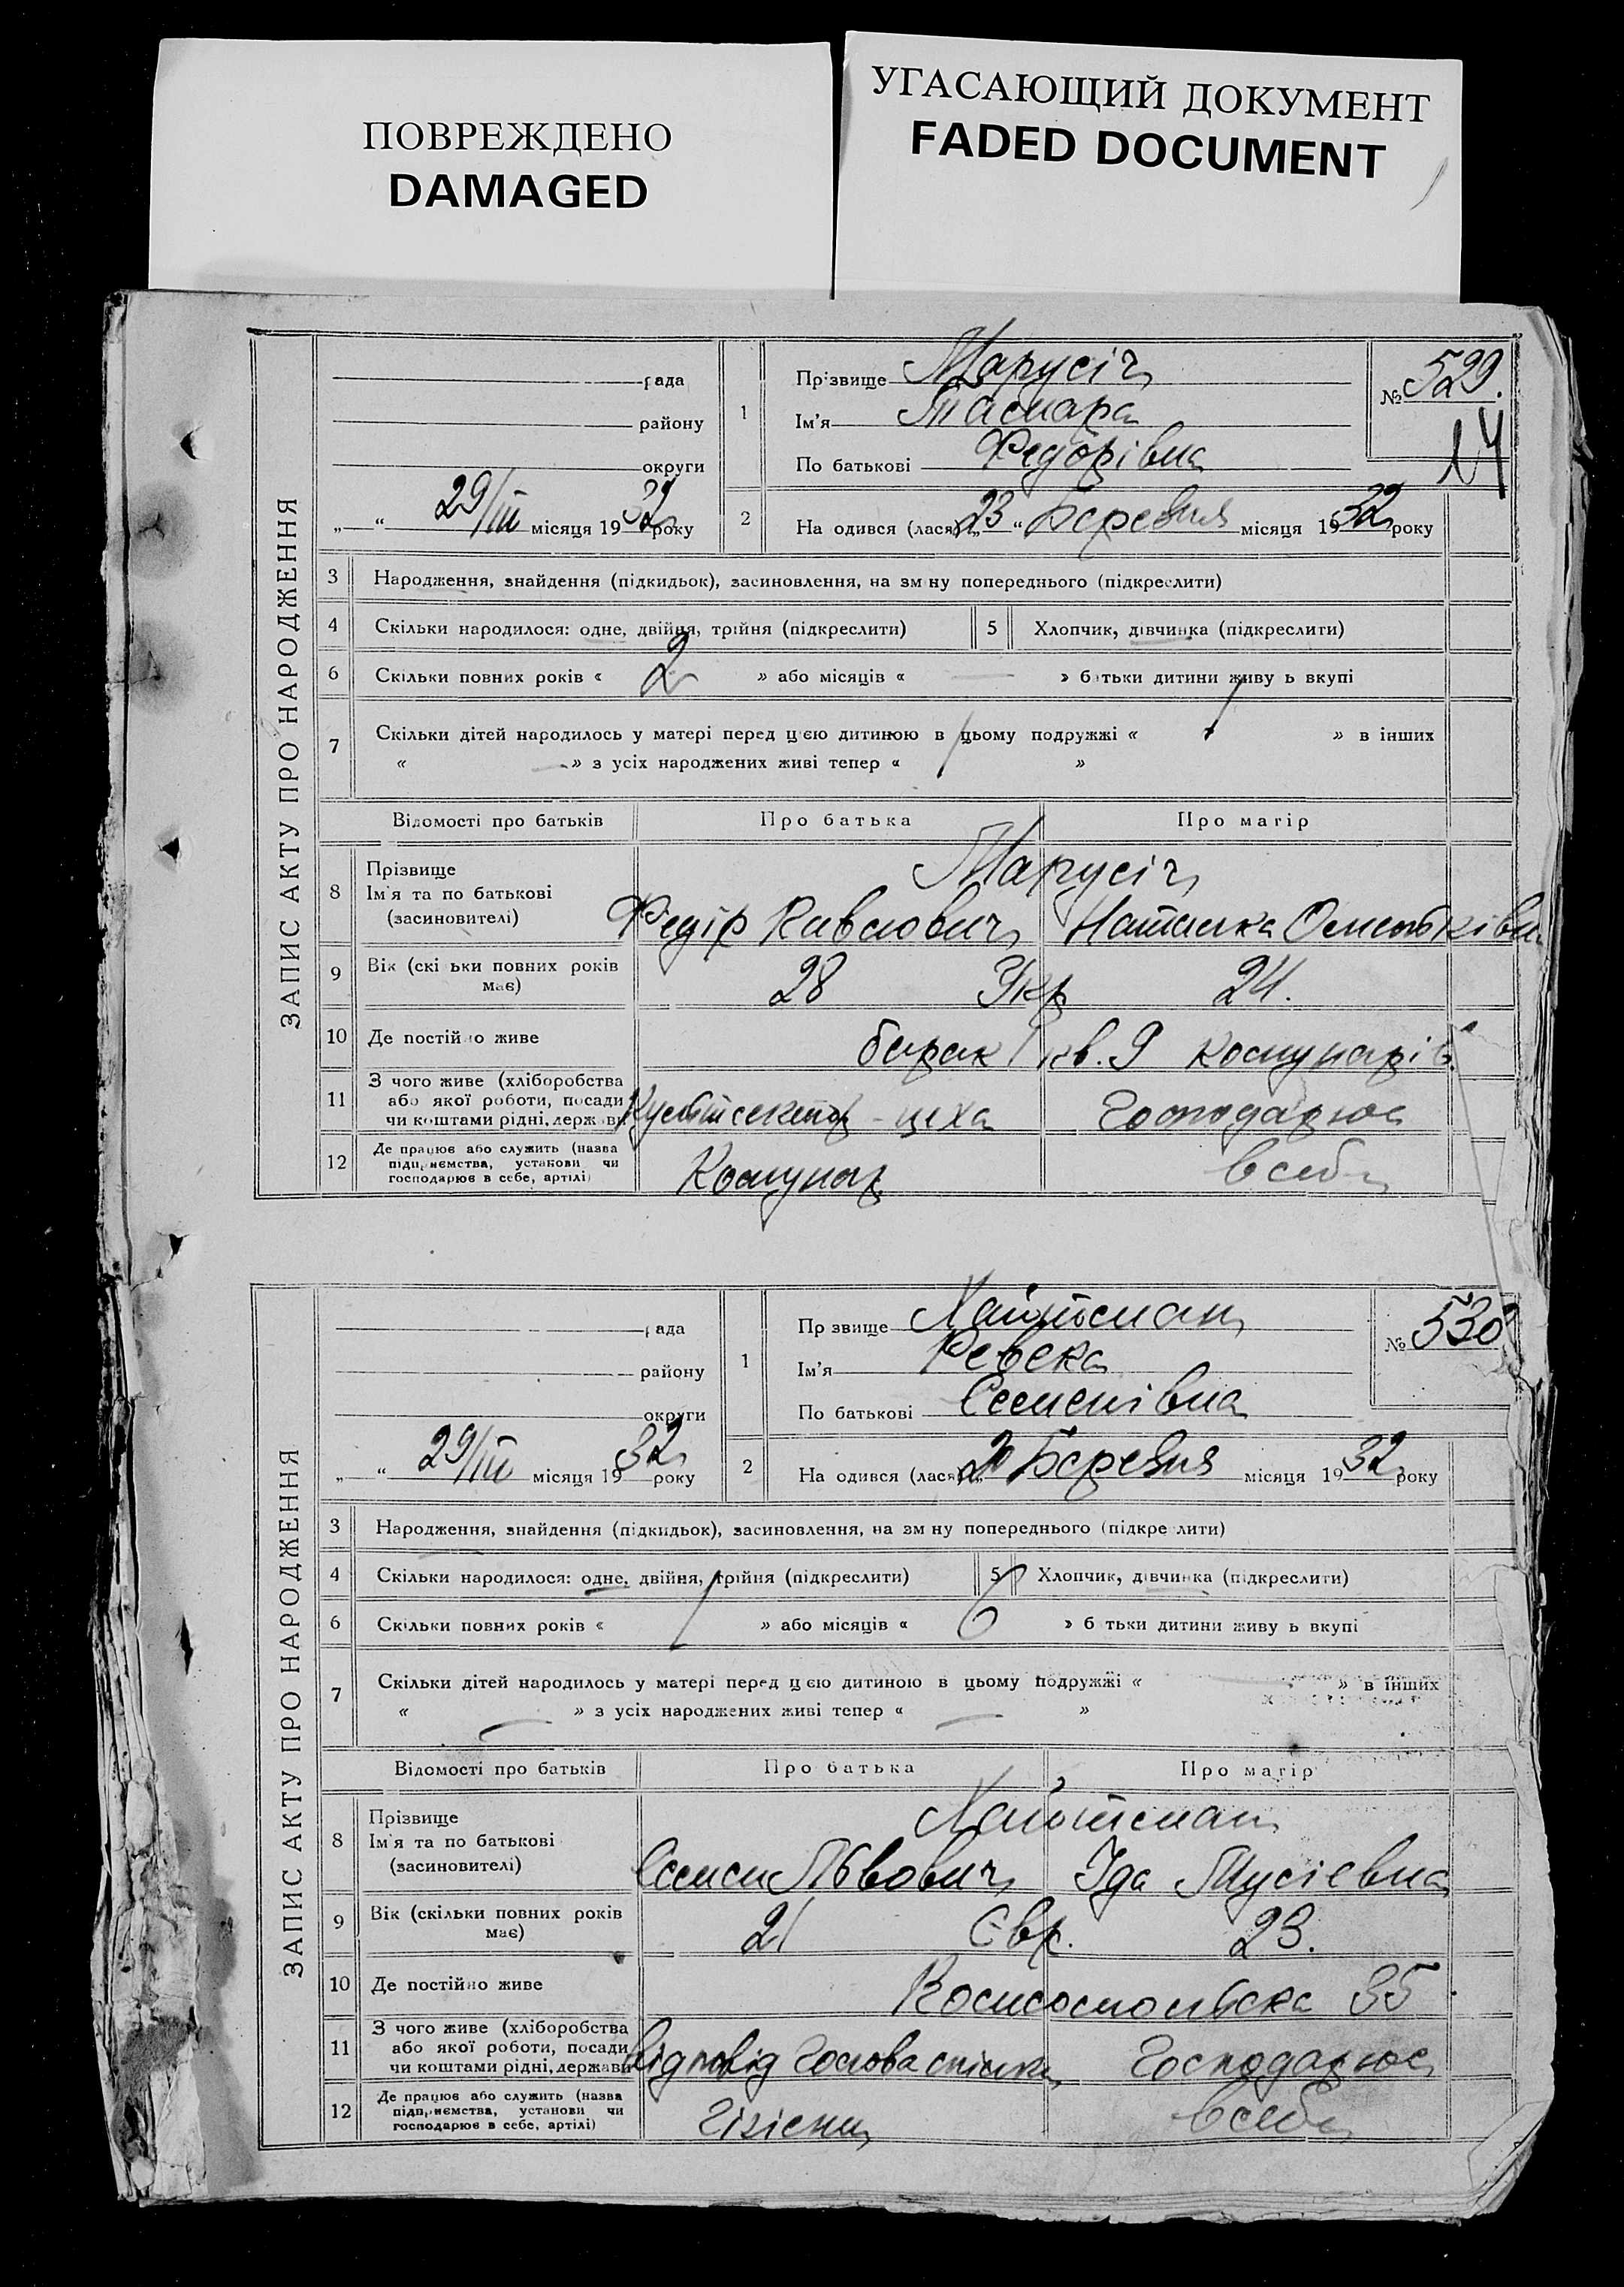 ПОВРЕЖДЕНО
DAMAGED
УГАСАЮЩИЙ ДОКУМЕНТ
FADED DOCUMENT
ЗАПИС АКТУ ПРО НАРОДЖЕННЯ
рада
району
округи
„ “ 29/III місяця 1932 року
1
Прізвище Марусіч
Ім'я Тамара
По батькові Федорівна
№ 529.
14
2
На одився (лася) „23“ Березня місяця 1932 року
3 Народження, знайдення (підкидьок), засиновлення, на зм ну попереднього (підкреслити)
4 Скільки народилося: одне, двійня, трійня (підкреслити)
5 Хлопчик, дівчинка (підкреслити)
6 Скільки повних років « 2 » або місяців « — » батьки дитини живу ь вкупі
7 Скільки дітей народилось у матері перед цією дитиною в цьому подружжі « 1 » в інших
« — » з усіх народжених живі тепер « 1 »
Відомості про батьків
Про батька
Про матір
8 Прізвище
Ім'я та по батькові
(засиновителі)
Марусіч
Федір Павлович Наталка
9 Вік (скі ьки повних років
має)
28 Укр 24.
10 Де постійно живе
барак 1 кв. 9 Комунарів
11 З чого живе (хліборобства
або якої роботи, посади
чи коштами рідні, держави
цеха Господарює
12 Де працює або служить (назва
підприємства, установи чи
господарює в себе, артілі)
Комунар в себе
ЗАПИС АКТУ ПРО НАРОДЖЕННЯ
рада
району
округи
„ “ 29/III місяця 1932 року
1
Пр звище Лайтман
Ім'я Ревека
По батькові Семенівна
№ 530
2
На одився (лася) „20 Березня місяця 1932 року
3 Народження, знайдення (підкидьок), засиновлення, на зм ну попереднього (підкре лити)
4 Скільки народилося: одне, двійня, трійня (підкреслити)
5 Хлопчик, дівчинка (підкреслити)
6 Скільки повних років « 1 » або місяців « 6 » б тьки дитини живу ь вкупі
7 Скільки дітей народилось у матері перед цією дитиною в цьому подружжі « — » в інших
« — » з усіх народжених живі тепер « — »
Відомості про батьків
Про батька
Про матір
8 Прізвище
Ім'я та по батькові
(засиновителі)
Лайтман
Семен Львович Іда Мусієвна
9 Вік (скільки повних років
має)
21 Євр. 23.
10 Де постійно живе
Комсомольска 35
11 З чого живе (хліборобства
або якої роботи, посади
чи коштами рідні, держави
Відповід Голова спілки Господарює
12 Де працює або служить (назва
підприємства, установи чи
господарює в себе, артілі)
Гігієни в себе